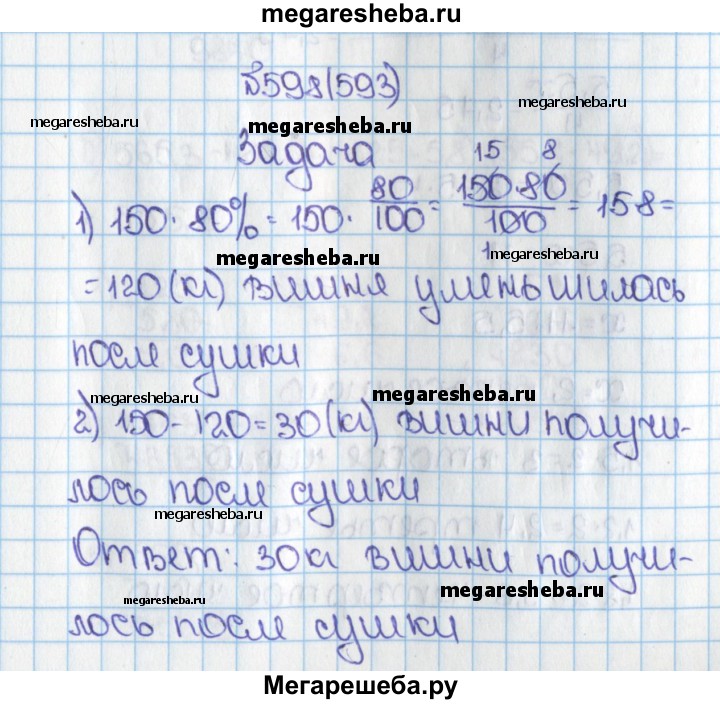 megaresheba.ru
№598(593)
megaresheba.ru
megaresheba.ru
megaresheba.ru
Задача
15 8
1) 150 · 80% = 150 · 80/100 = 150·80/100 = 15·8 =
1
megaresheba.ru
megaresheba.ru
= 120 (кг) вишня уменьшилась
после сушки
megaresheba.ru
megaresheba.ru
2) 150 - 120 = 30 (кг) вишни получи-
лось после сушки
megaresheba.ru
Ответ: 30 кг вишни получи-
megaresheba.ru
megaresheba.ru
лось после сушки
Мегарешеба.ру